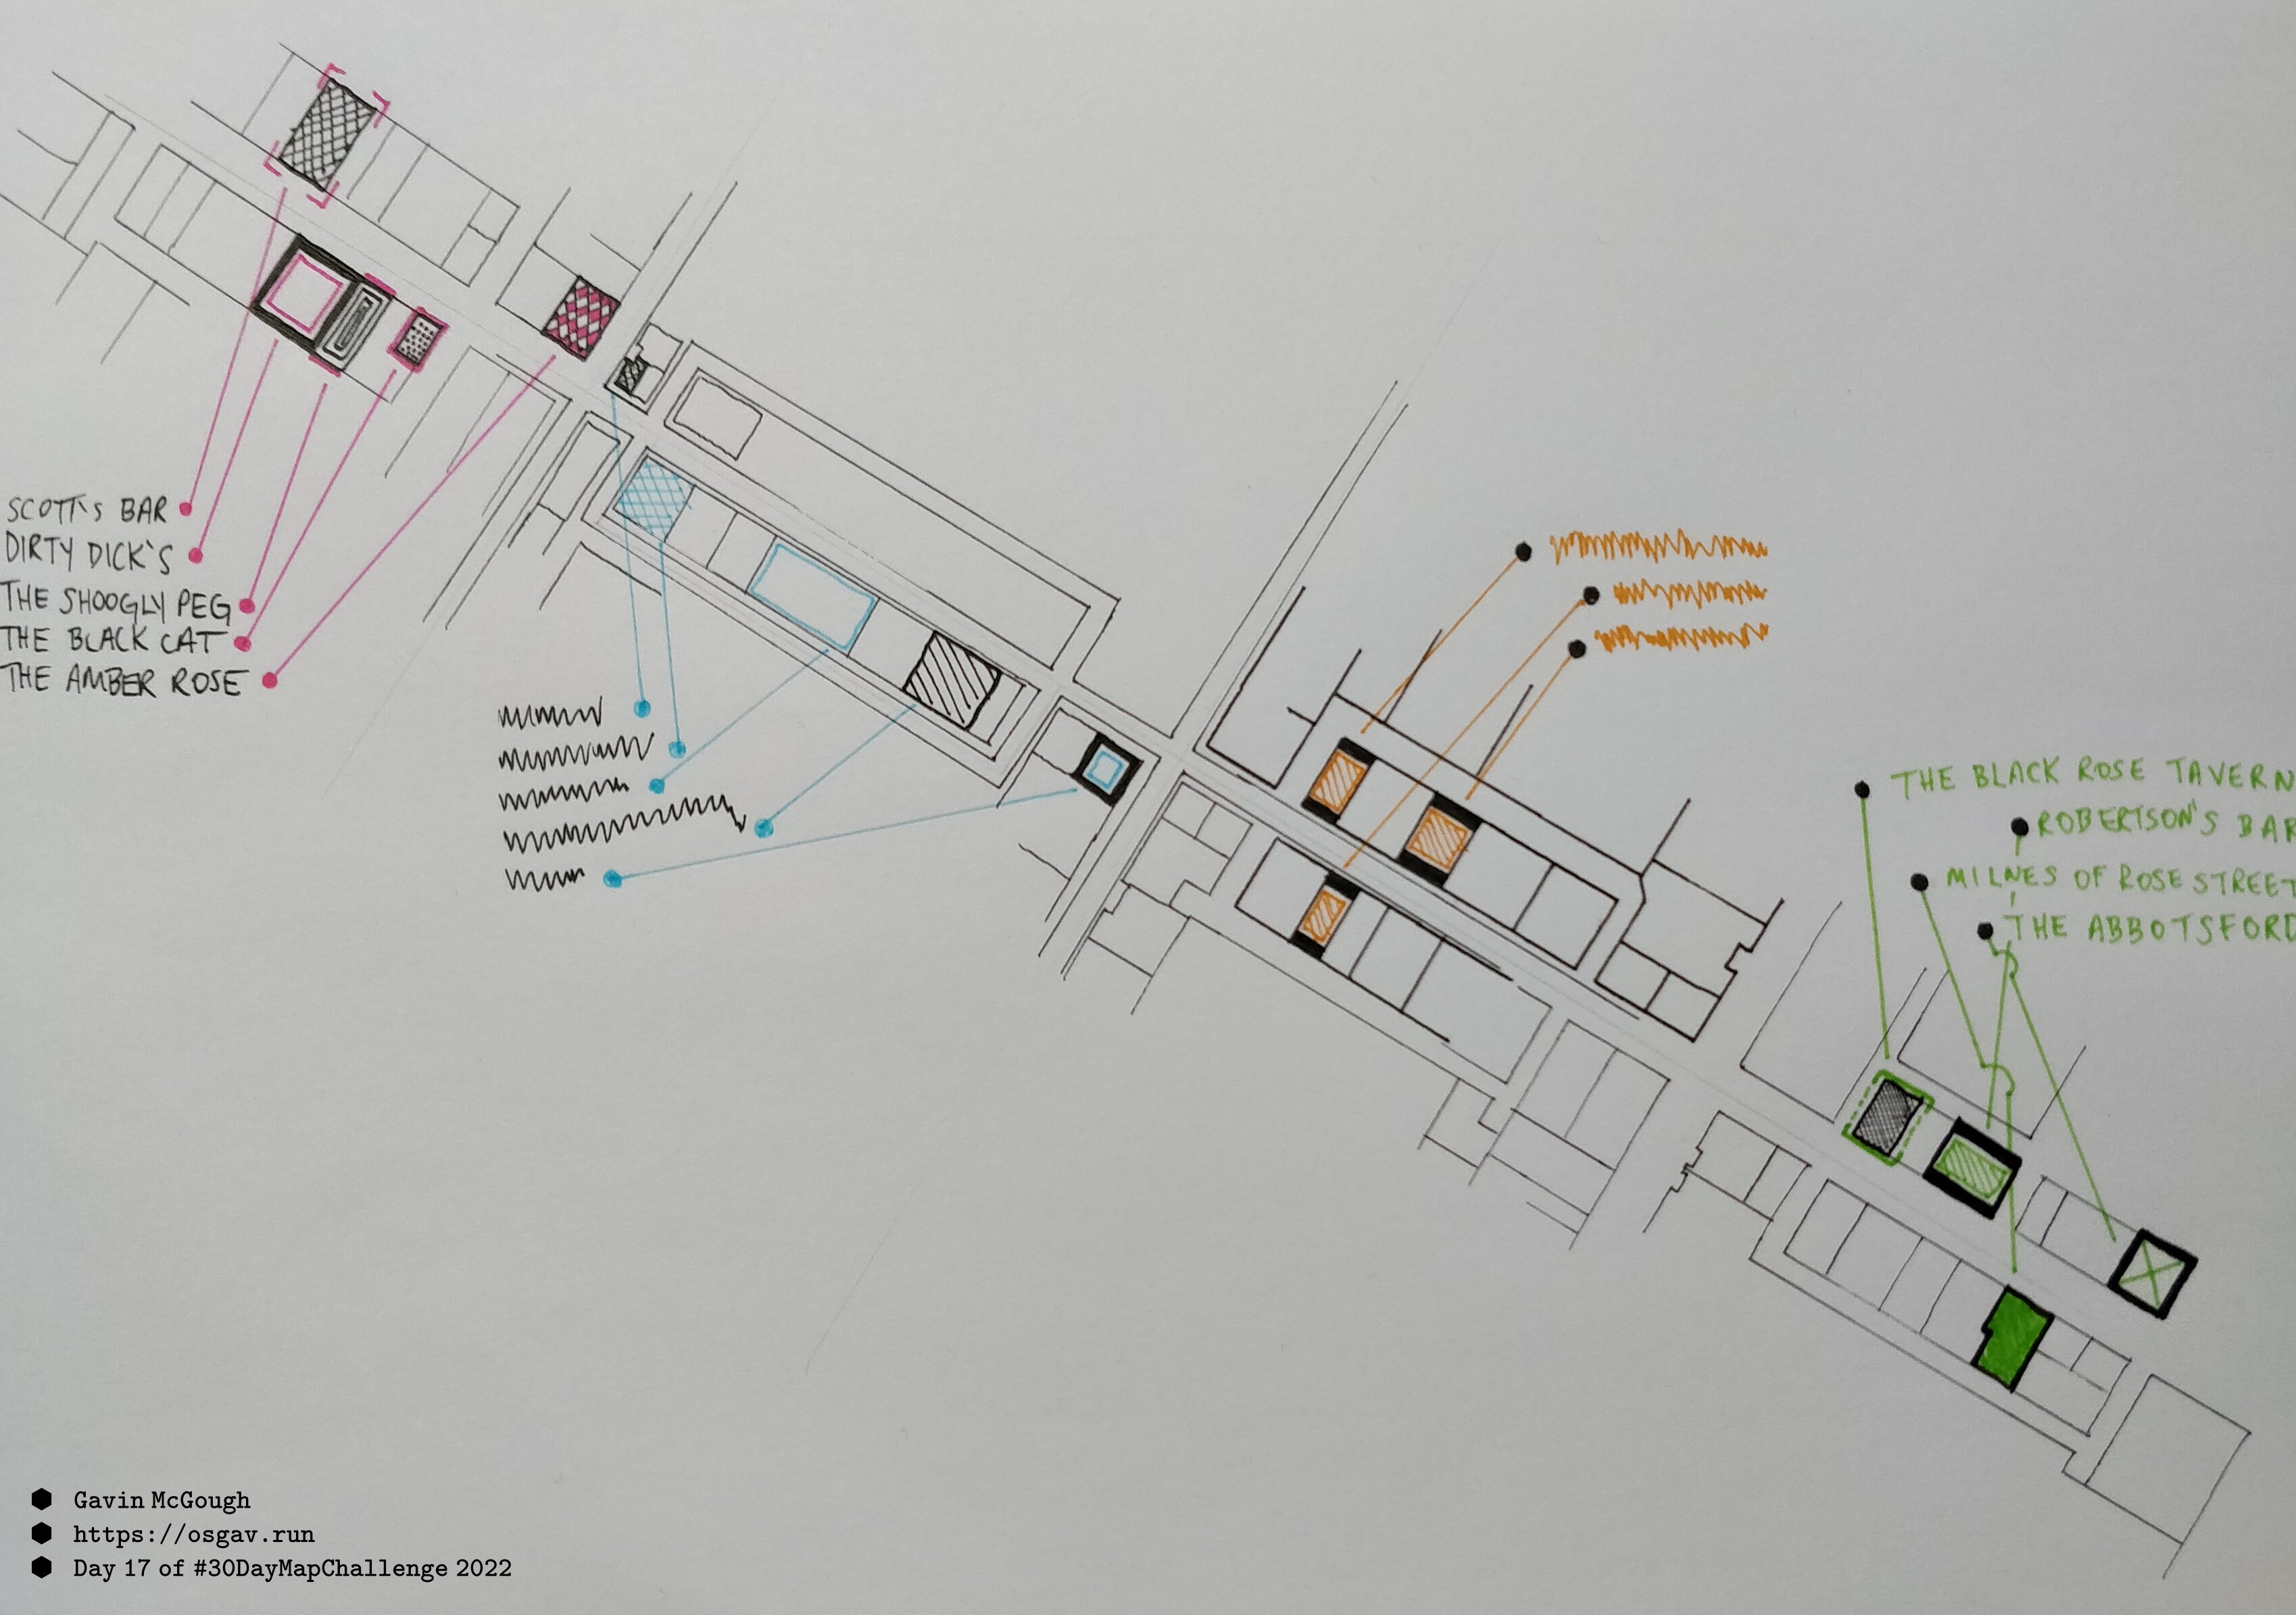 SCOTT'S BAR
DIRTY DICK'S
THE SHOOGLY PEG
THE BLACK CAT
THE AMBER ROSE
THE BLACK ROSE TAVERN
ROBERTSON'S BAR
MILNES OF ROSE STREET
THE ABBOTSFORD
Gavin McGough
https://osgav.run
Day 17 of #30DayMapChallenge 2022